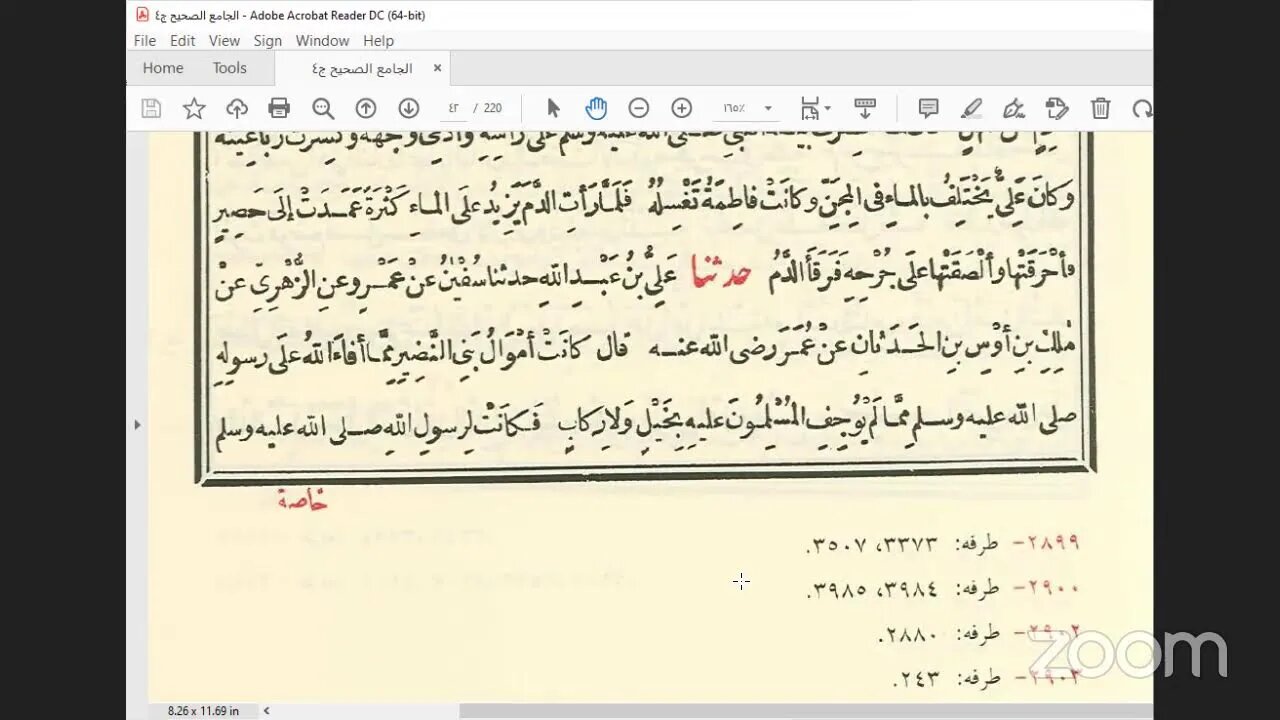 الجامع الصحيح ج٤ - Adobe Acrobat Reader DC (64-bit)
File Edit View Sign Window Help
Home Tools الجامع الصحيح ج٤ ×
٤٢ / 220 ١٦٥٪
النبي صلى الله عليه وسلم على رأسه وأدمي وجهه وكسرت رباعيته
وَكَانَ عَلِيٌّ يَخْتَلِفُ بِالْمَاءِ فِى الْمِجَنِّ وَكَانَتْ فَاطِمَةُ تَغْسِلُهُ فَلَمَّا رَأَتِ الدَّمَ يَزِيدُ عَلَى الْمَاءِ كَثْرَةً عَمَدَتْ إِلَى حَصِيرٍ
فَأَحْرَقَتْهَا وَأَلْصَقَتْهَا عَلَى جُرْحِهِ فَرَقَأَ الدَّمُ حدثنا عَلِيُّ بْنُ عَبْدِ اللهِ حدثنا سُفْيٰنُ عَنْ عَمْرٍو عَنِ الزُّهْرِىِّ عَنْ
مٰلِكِ بْنِ أَوْسِ بْنِ الْحَدَثَانِ عَنْ عُمَرَ رضى الله عنه قال كَانَتْ أَمْوَالُ بَنِى النَّضِيرِ مِمَّا أَفَاءَ اللهُ عَلَى رسولِهِ
صلى الله عليه وسلم مِمَّا لَمْ يُوجِفِ الْمُسْلِمُونَ عليهِ بِخَيْلٍ وَلَا رِكَابٍ فَكَانَتْ لِرسولِ اللهِ صلى الله عليه وسلم
خاصة
٢٨٩٩- طرفه: ٣٣٧٣، ٣٥٠٧.
٢٩٠٠- طرفه: ٣٩٨٤، ٣٩٨٥.
٢٩٠٢- طرفه: ٢٨٨٠.
٢٩٠٣- طرفه: ٢٤٣.
zoom
8.26 x 11.69 in